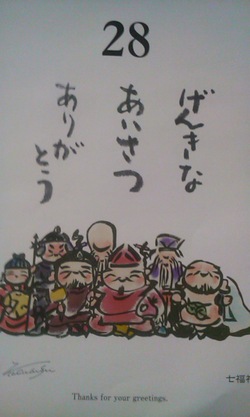 28
げんきな
あいさつ
ありが
とう
七福
Thanks for your greetings.